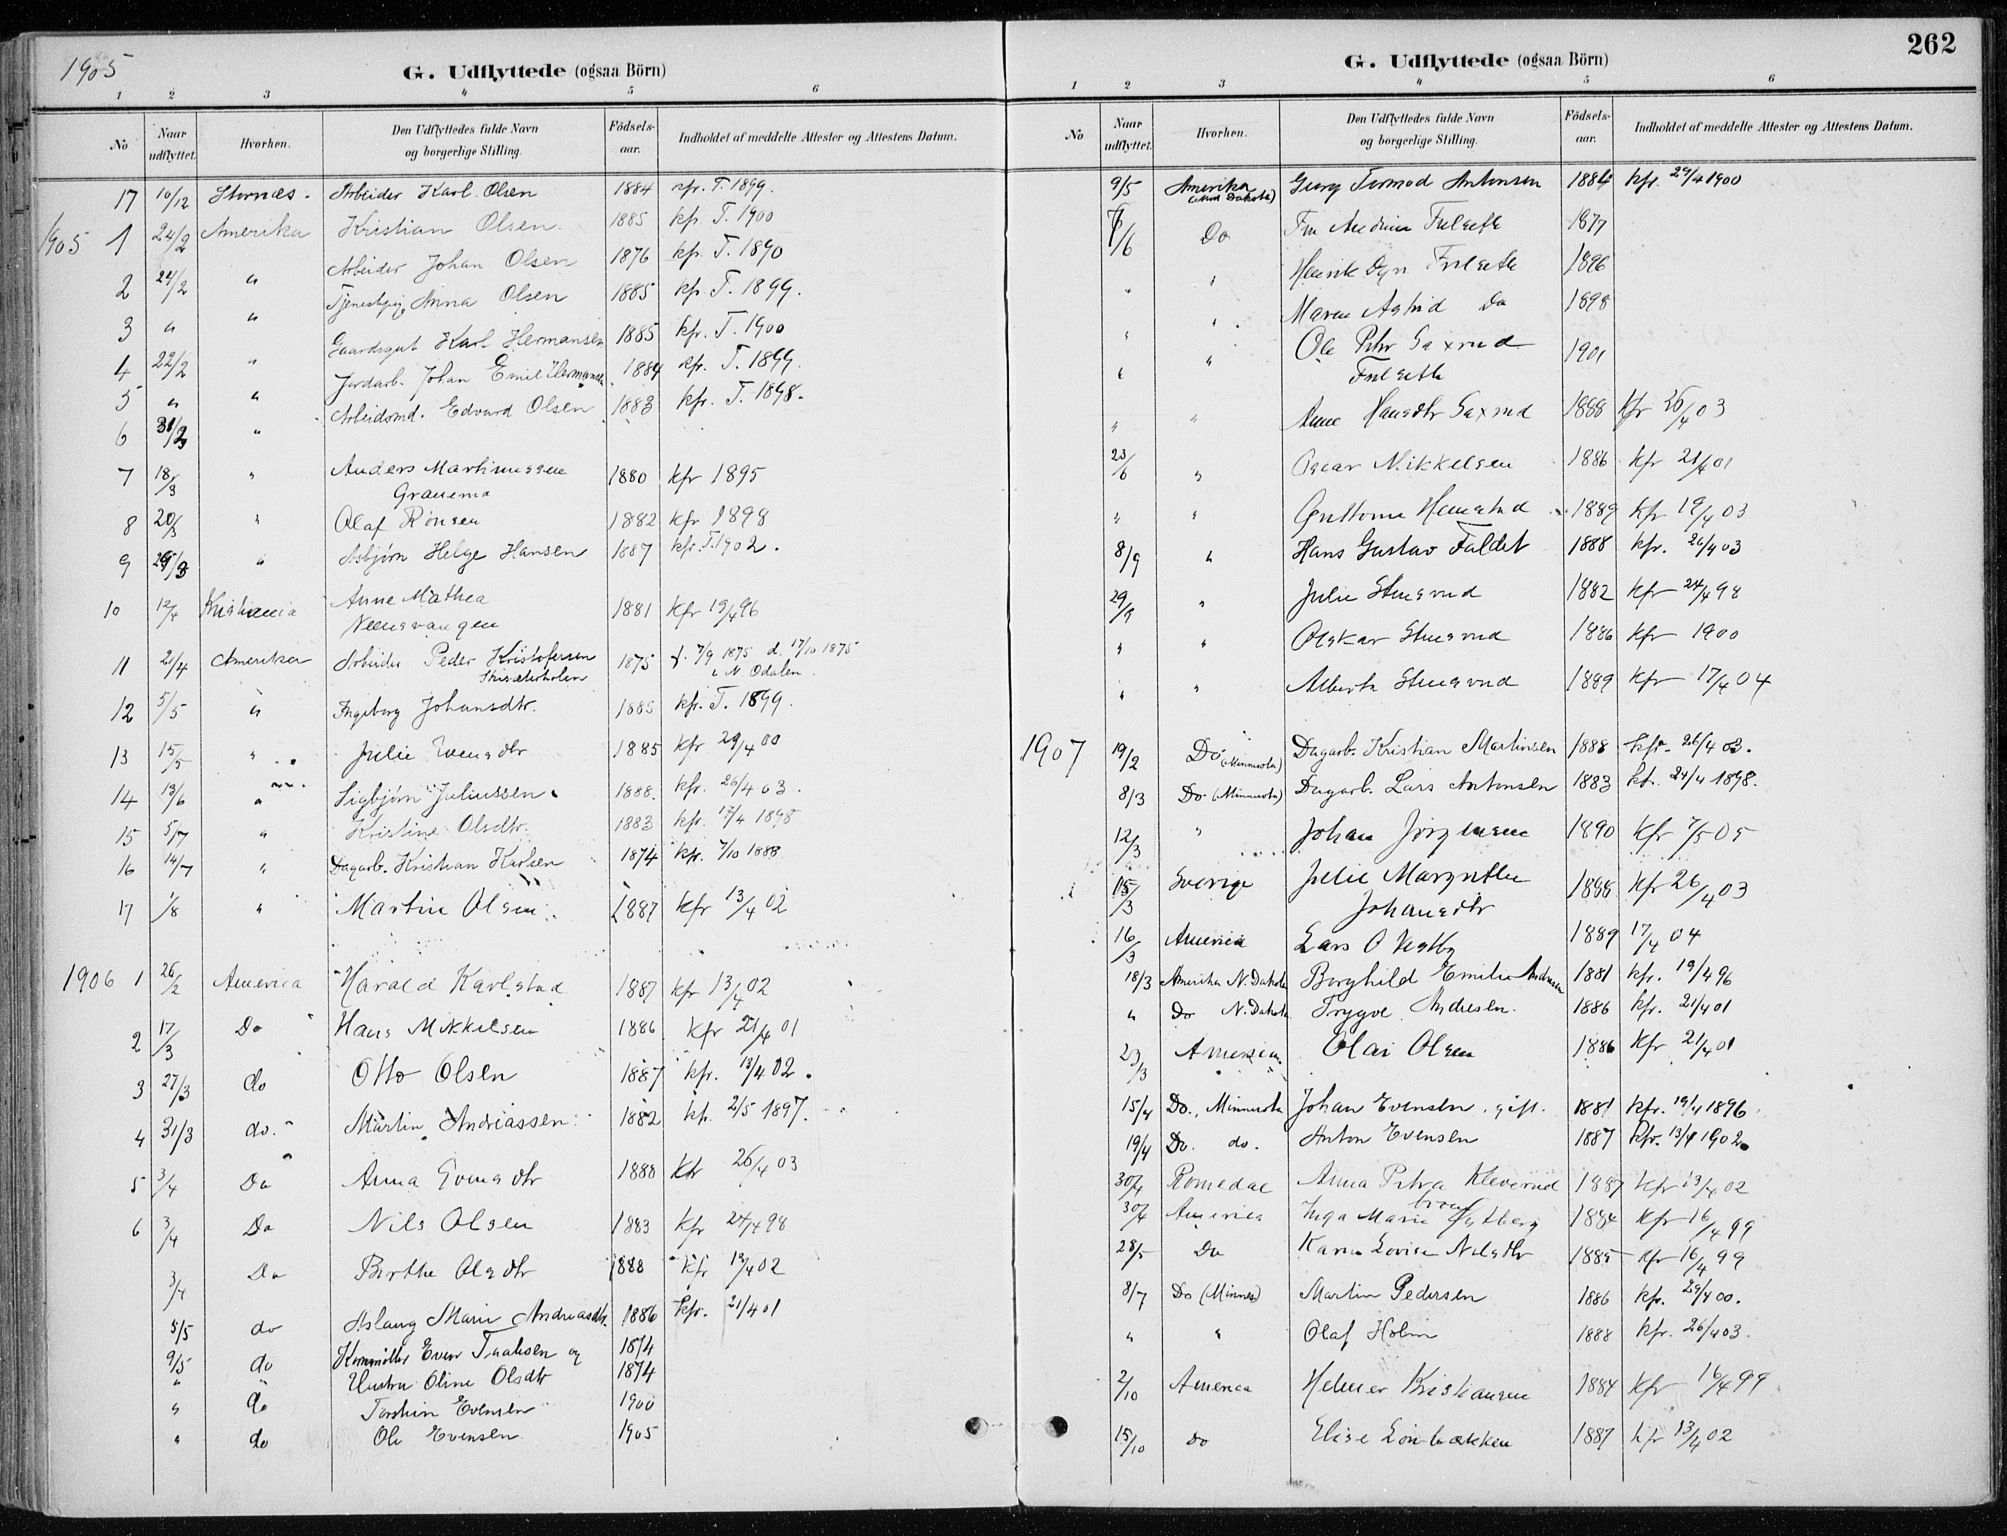 1905
G. Udflyttede (ogsaa Börn)
1 2 3 4 5 6
No
Naar udflyttet.
Hvorhen.
Den Udflyttedes fulde Navn og borgerlige Stilling.
Födsels-aar.
Indholdet af meddelte Attester og Attestens Datum.
17 10/12 Arbeider Karl Olsen 1884 kfr. T. 1899.
1905 1 24/2 Amerika Kristian Olsen. 1885 kfr. T. 1900
2 24/2 " Arbeider Johan Olsen 1876 kfr. T. 1890
3 " " Anna Olsen 1885 kfr. T. 1899.
4 22/2 " Gaardsgut Karl Hermansen 1885 kfr. T. 1900
5 " " Jordarb. Johan Emil Hermansen 1884 kfr. T. 1899.
6 " Arbeidsmd. Edvard Olsen 1883 kfr. T. 1898.
7 18/3 " Anders Martinussen
1880 kfr 1895
8 20/3 " Olaf Rönsen 1882 kfr 1898
9 " Asbjørn Helge Hansen 1887 kfr. T. 1902.
10 12/4 Kristiania Anne Mathea
1881 kfr 19/4 96
11 21/4 Amerika Arbeider Peder Kristofersen 1875 f. 7/9 1875 d. 17/10 1875
i N. Odalen.
12 5/5 " Ingeborg Johansdtr. 1885 kfr. T. 1899.
13 15/5 " Julie Evensdtr 1885 kfr 29/4 00
14 13/6 " Sigbjørn Juliussen 1888. kfr. 26/4 03.
15 5/7 " Kristine Olsdtr. 1883 kfr. 17/4 1898
16 14/7 " Dagarb. Kristian Karlsen 1874 kfr. 7/10 1888
17 1/8 " Martin Olsen 1887 kfr 13/4 02
1906 1 26/2 America Harald Karlstad 1887 kfr 13/4 02
2 17/3 Do Hans Mikkelsen 1886 kfr 21/4 01
3 27/3 do Otto Olsen 1887 kfr. 13/4 02.
4 31/3 do. Martin Andreassen 1882 kfr. 2/5 1897.
5 3/4 Do Anna Evensdtr 1888 kfr 26/4 03
6 3/4 Do Nils Olsen 1883 kfr 24/4 98
3/4 Do Birthe Olsdtr 1888 kfr 13/4 02
5/5 do Aslaug Marie Andreasdtr. 1886 kfr. 21/4 01
9/5 do Even og 1874
" " Hustru Oline Olsdtr 1874
" do Torstein Evensen 1900
" do Ole Evensen 1905
262
G. Udflyttede (ogsaa Börn)
1 2 3 4 5 6
No
Naar udflyttet.
Hvorhen.
Den Udflyttedes fulde Navn og borgerlige Stilling.
Födsels-aar.
Indholdet af meddelte Attester og Attestens Datum.
9/5 Amerika Georg Tormod Antonsen 1884 kfr. 29/4 1900
(Nord Dakota)
Do Fru 1877
" " Henrik 1896
" " Maren Astrid Do 1898
" " Ole Peter Saxrud 1901
" " Anne Hansdtr Saxrud 1888 kfr 26/4 03
23/6 " Oscar Mikkelsen 1886 kfr 21/4 01
" " Guttorm 1889 kfr 19/4 03
8/9 " Hans Gustav Faldet 1888 kfr. 26/4 03
29/9 " Julie Stensrud 1882 kfr 24/4 98
" " Olskar Stensrud 1886 kfr 1900
" " Alberth Stensrud 1889 kfr 17/4 04
1907 19/2 Do (Minnesota) Dagarb. Kristian Martinsen 1888 kfr. 26/4 03.
8/3 Do (Minnesota) Dagarb. Lars Antonsen 1883 kf. 24/4 1898.
12/3 " Johan Jörgensen 1890 kfr 7/5 05
15/3 Sverige Julie Margrethe
Johansdtr 1888 kfr 26/4 03
16/3 America Lars O Vestby 1889 17/4 04
18/3 Amerika N. Dakota Borghild Emilie Andresen 1881 kfr. 19/4 96
" Do N. Dakota Trygve Andresen. 1886 kfr. 21/4 01
23/3 America Olai Olsen 1886 kfr 21/4 01
15/4 Do., Minnesota Johan Evensen. gift. 1881 kfr. 19/4 1896
19/4 Do. do. Anton Evensen 1887 kfr. 13/4 1902
30/4 Romedal Anna Petra Kleverud 1887 kfr 13/4 02
30/4 America Inga Marie 1884 kfr 16/4 99
28/5 Do Karen Lovise Nilsdtr 1885 kfr 16/4 99
8/7 Do (Minnes) Martin Pedersen 1886 kfr. 29/4 00.
" " Olaf Holm 1888 kfr. 26/4 03.
2/10 America Helmer Kristiansen 1884 kfr 16/4 99
15/10 Do Elise 1887 kfr 13/4 02